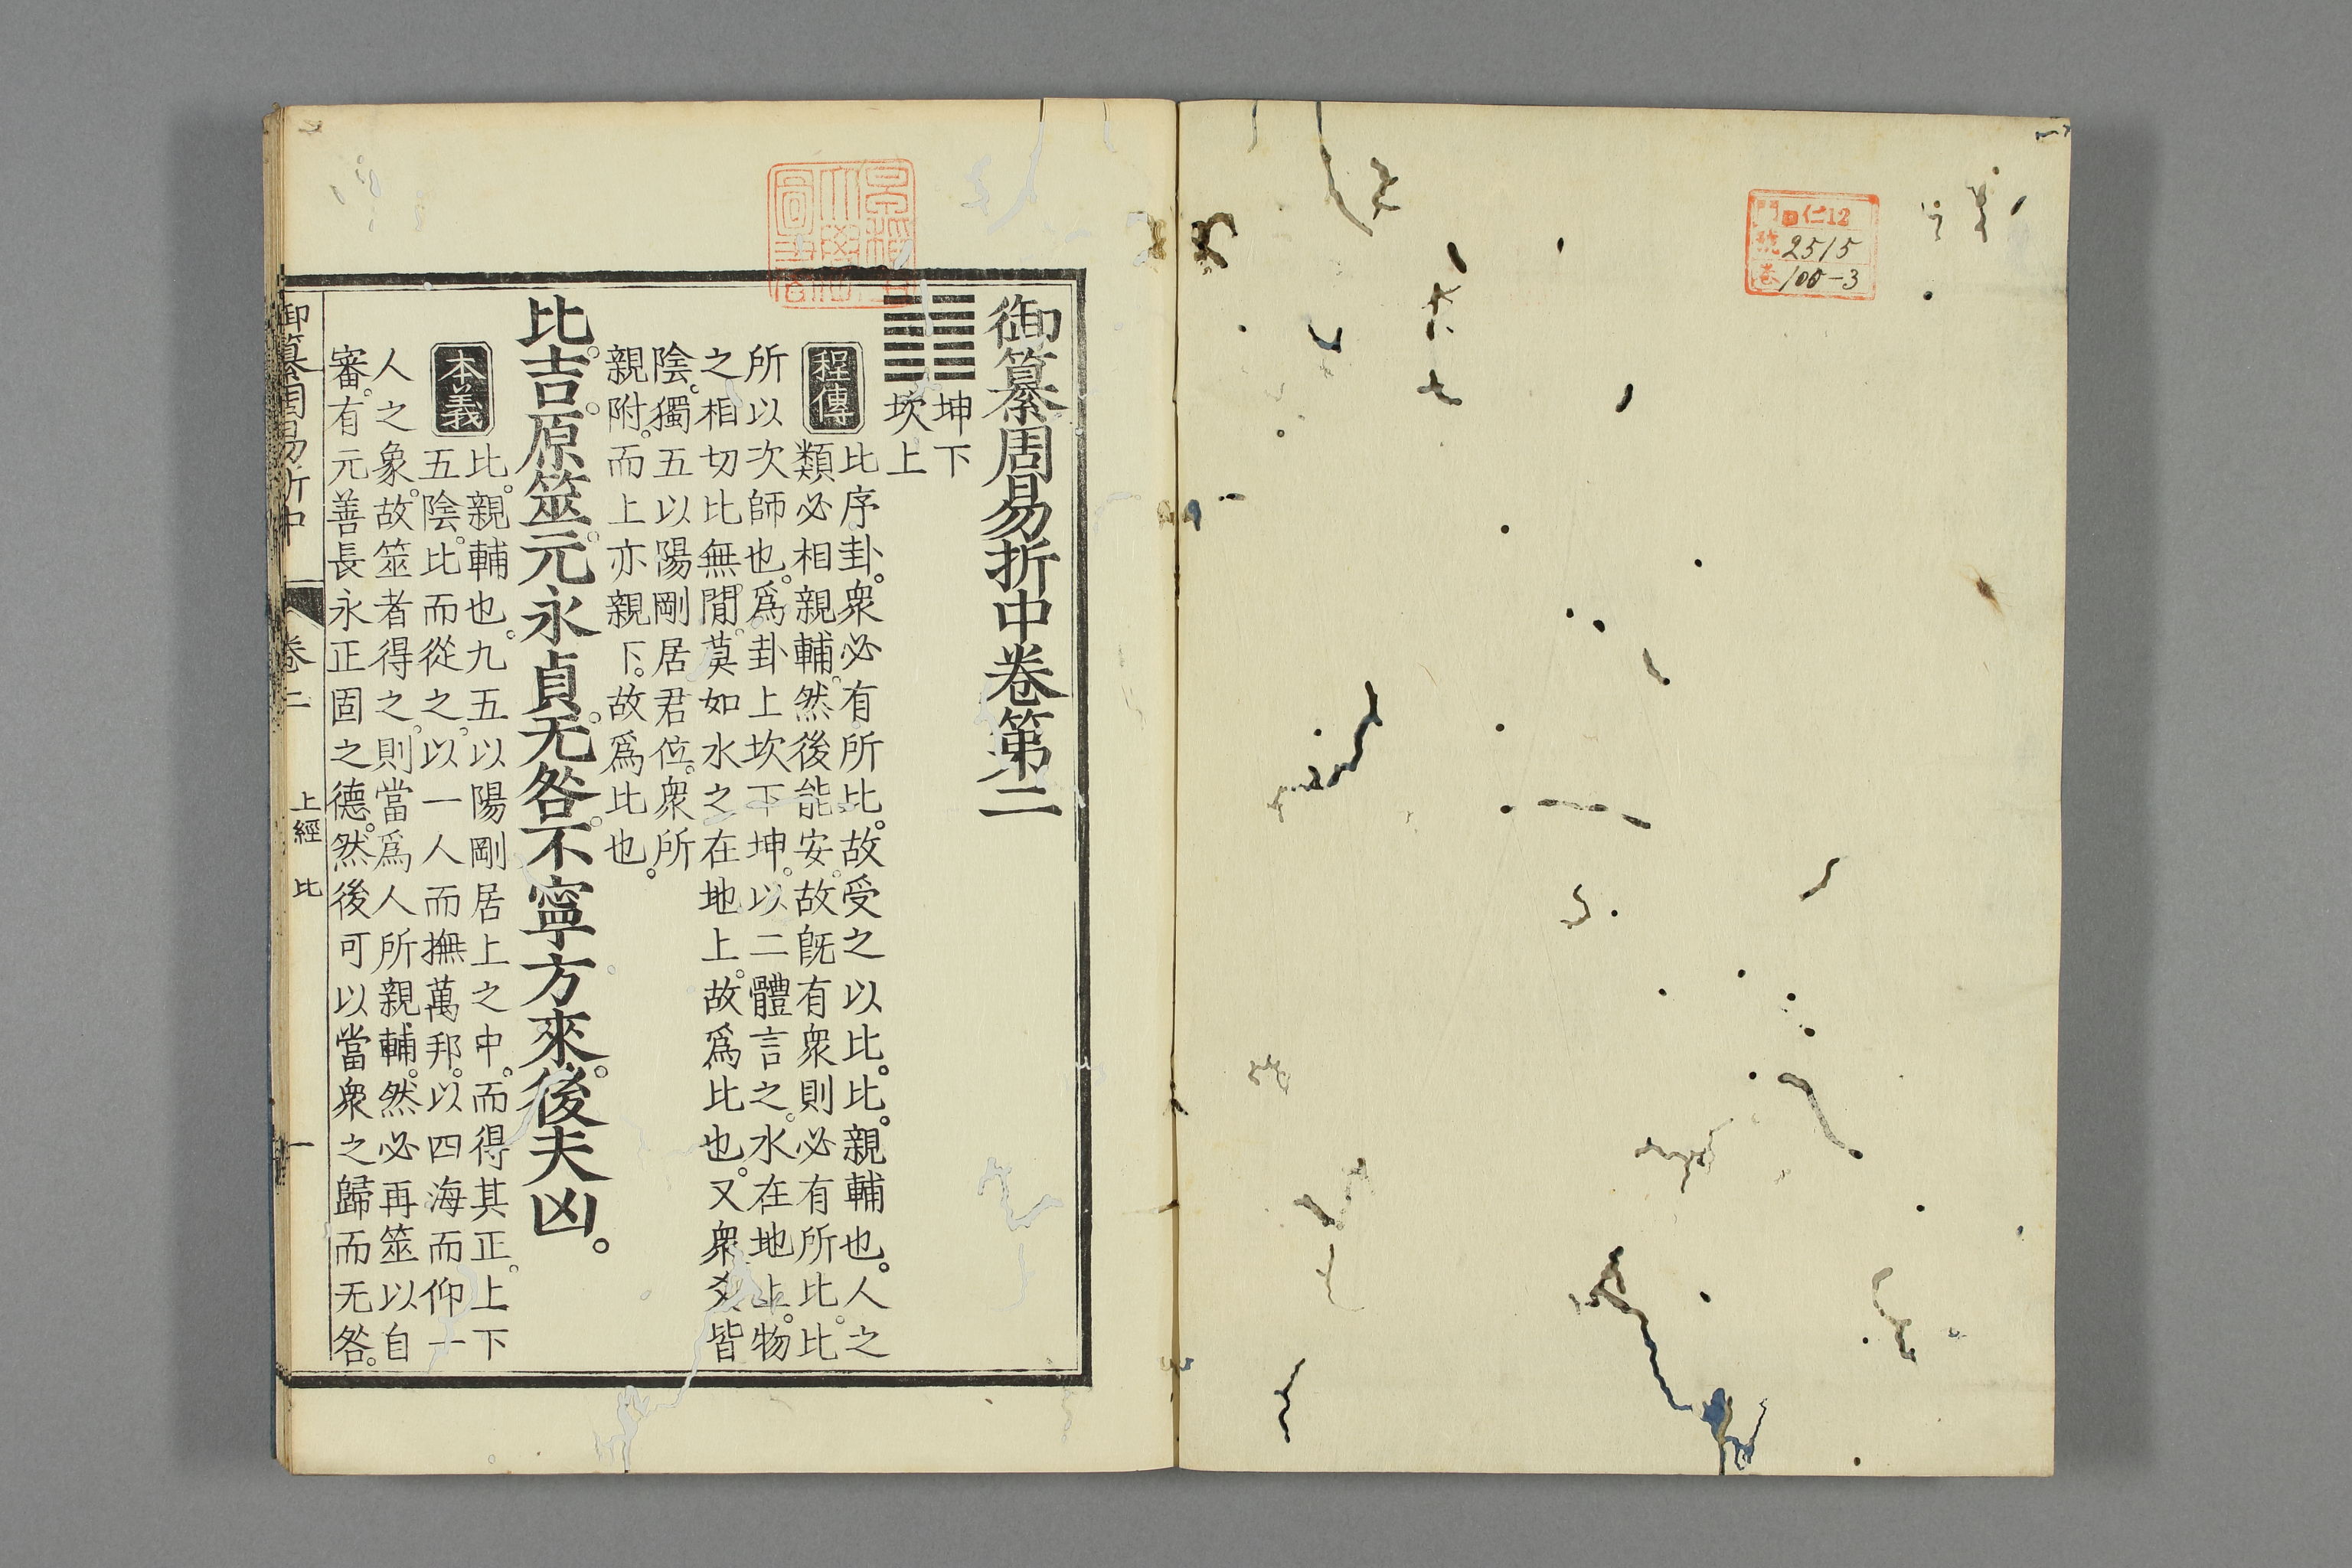 門 仁12
號 2515
卷 100-3
御纂周易折中卷第二
坤下
坎上
程傳
比序卦。衆必有所比。故受之以比。比。親輔也。人之
類必相親輔。然後能安。故旣有衆則必有所比。比
所以次師也。爲卦上坎下坤。以二體言之。水在地上。物
之相切比無閒。莫如水之在地上。故爲比也。又衆爻皆
陰。獨五以陽剛居君位。衆所
親附。而上亦親下。故爲比也。
比。吉。原筮。元永貞。无咎。不寧方來。後夫凶。
本義
比。親輔也。九五以陽剛居上之中。而得其正。上下
五陰。比而從之。以一人而撫萬邦。以四海而仰一
人之象。故筮者得之。則當爲人所親輔。然必再筮以自
審。有元善長永正固之德。然後可以當衆之歸而无咎。
御纂周易折中
卷二
上經 比
一